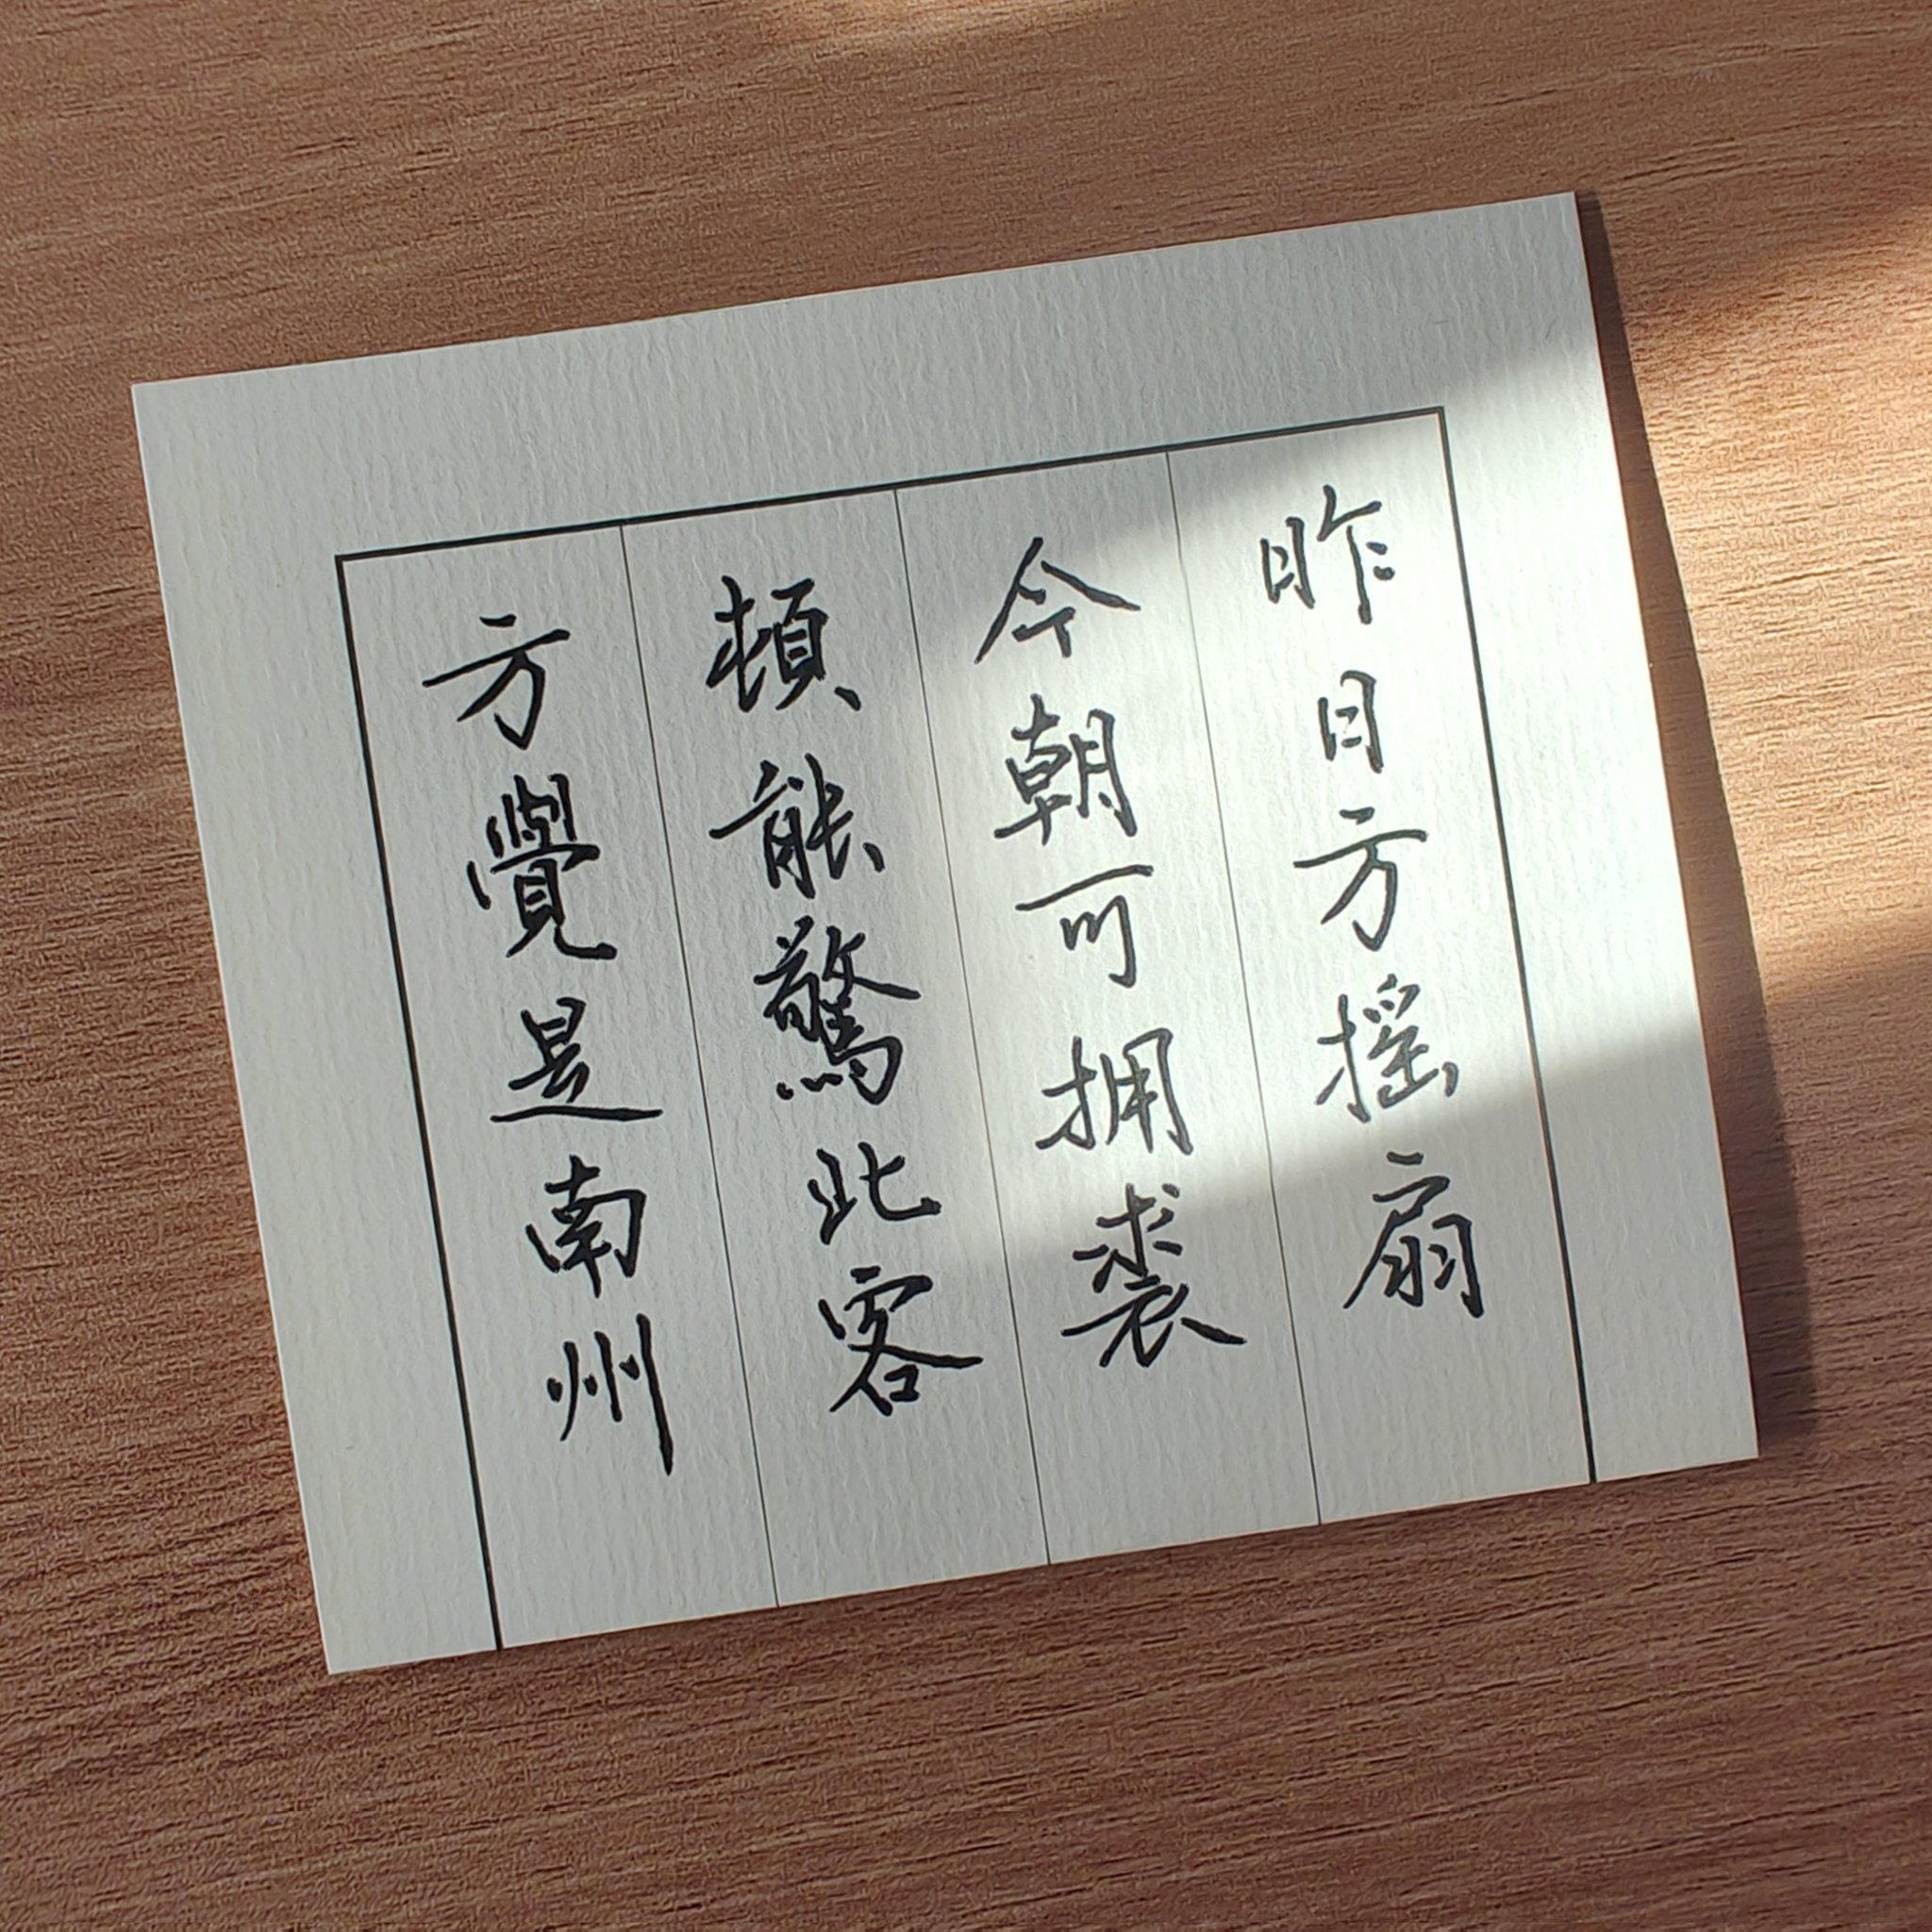 昨日方摇扇
今朝可拥裘
頓能驚北客
方覺是南州